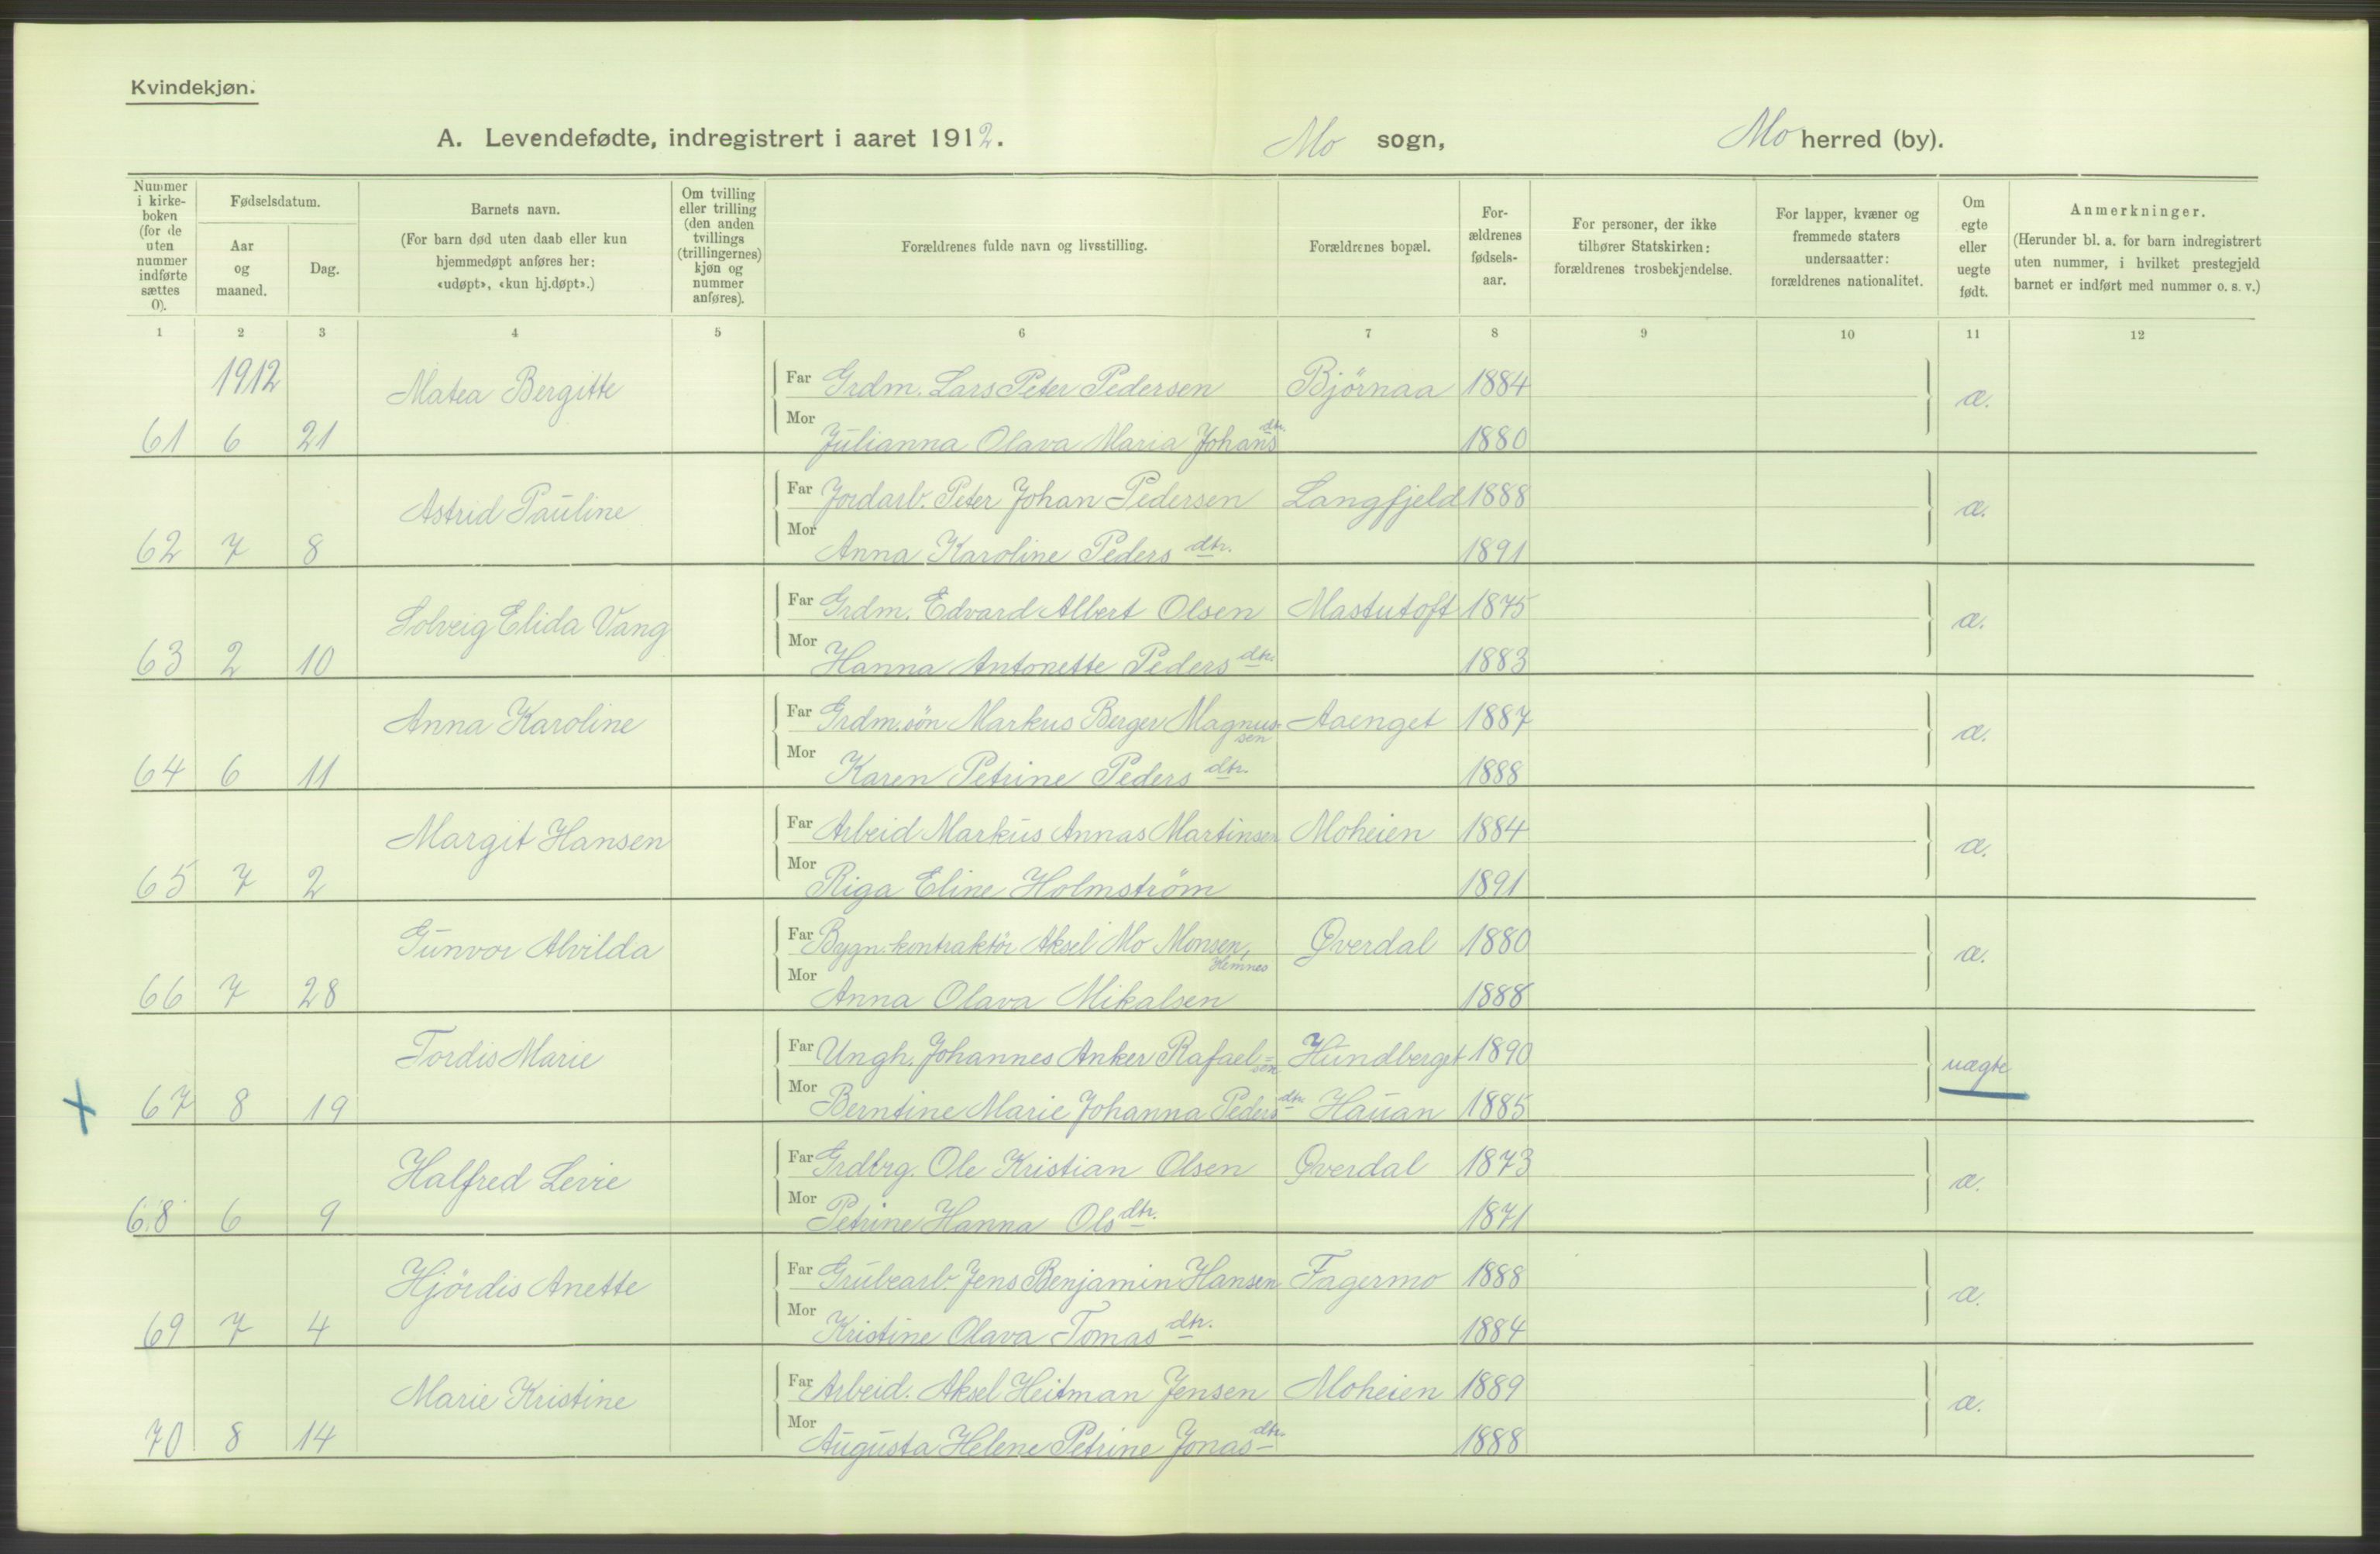 Kvindekjøn.
A. Levendefødte, indregistrert i aaret 1912. Mo sogn, Mo herred (by).
Nummer i kirke-boken (for de uten nummer indførte sættes 0).
Fødselsdatum.
Aar og maaned.
Dag.
Barnets navn.
(For barn død uten daab eller kun hjemmedøpt anføres her: «udøpt», «kun hj.døpt».)
Om tvilling eller trilling (den anden tvillings (trillingernes) kjøn og nummer anføres).
Forældrenes fulde navn og livsstilling.
Forældrenes bopæl.
For-ældrenes fødsels-aar.
For personer, der ikke tilhører Statskirken: forældrenes trosbekjendelse.
For lapper, kvæner og fremmede staters undersaatter: forældrenes nationalitet.
Om egte eller uegte født.
Anmerkninger.
(Herunder bl. a. for barn indregistrert uten nummer, i hvilket prestegjeld barnet er indført med nummer o. s. v.)
1 2 3 4 5 6 7 8 9 10 11 12
1912 Matea Bergitte Far Grdm. Lars Peter Pedersen Bjørnaa 1884 æ.
61 6 21 Mor Julianna Olava Maria Johansdtr. 1880
Astrid Pauline Far Jordarb. Peter Johan Pedersen Langfjeld 1888 æ.
62 7 8 Mor Anna Karoline Pedersdtr. 1891
Solveig Elida Vang Far Grdm. Edvard Albert Olsen Mastutoft 1875 æ.
63 2 10 Mor Hanna Antonette Pedersdtr. 1883
Anna Karoline Far Grdm.søn Markus Berger Magnussen Aaenget 1887 æ.
64 6 11 Mor Karen Petrine Pedersdtr. 1888
Margit Hansen Far Arbeid Markus Annas Martinsen Moheien 1884 æ.
65 7 2 Mor Riga Eline Holmström 1891
Gunvor Alvilda Far Bygn.kontraktör Aksel Mo Monsen, Hemnes Øverdal 1880 æ.
66 7 28 Mor Anna Olava Mikalsen 1888
Tordis Marie Far Ungk. Johannes Anker Rafael=sen Hundberget 1890 uægte
+ 67 8 19 Mor Berntine Marie Johanna Pedersdtr. Hauan 1885
Halfred Levie Far Grdbrg. Ole Kristian Olsen Øverdal 1873 æ.
68 6 9 Mor Petrine Hanna Olsdtr. 1871
Hjördis Anette Far Grubearb. Jens Benjamin Hansen Fagermo 1888 æ.
69 7 4 Mor Kristine Olava Tomasdtr. 1884
Marie Kristine Far Arbeid. Aksel Heitman Jensen Moheien 1889 æ.
70 8 14 Mor Augusta Helene Petrine Jonasdtr. 1888